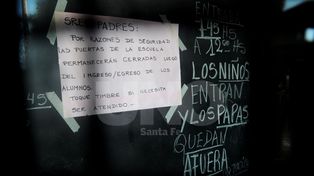 SRES. PADRES:
POR RAZONES DE SEGURIDAD
LAS PUERTAS DE LA ESCUELA
PERMANECERÁN CERRADAS LUEGO
DEL INGRESO/EGRESO DE LOS
ALUMNOS
TOQUE TIMBRE SI NECESITA
SER ATENDIDO.-
Santa Fe
45
ENTRA
A 12
HS
LOS NIÑOS
ENTRAN
Y LOS PAPAS
QUEDAN
AFUERA